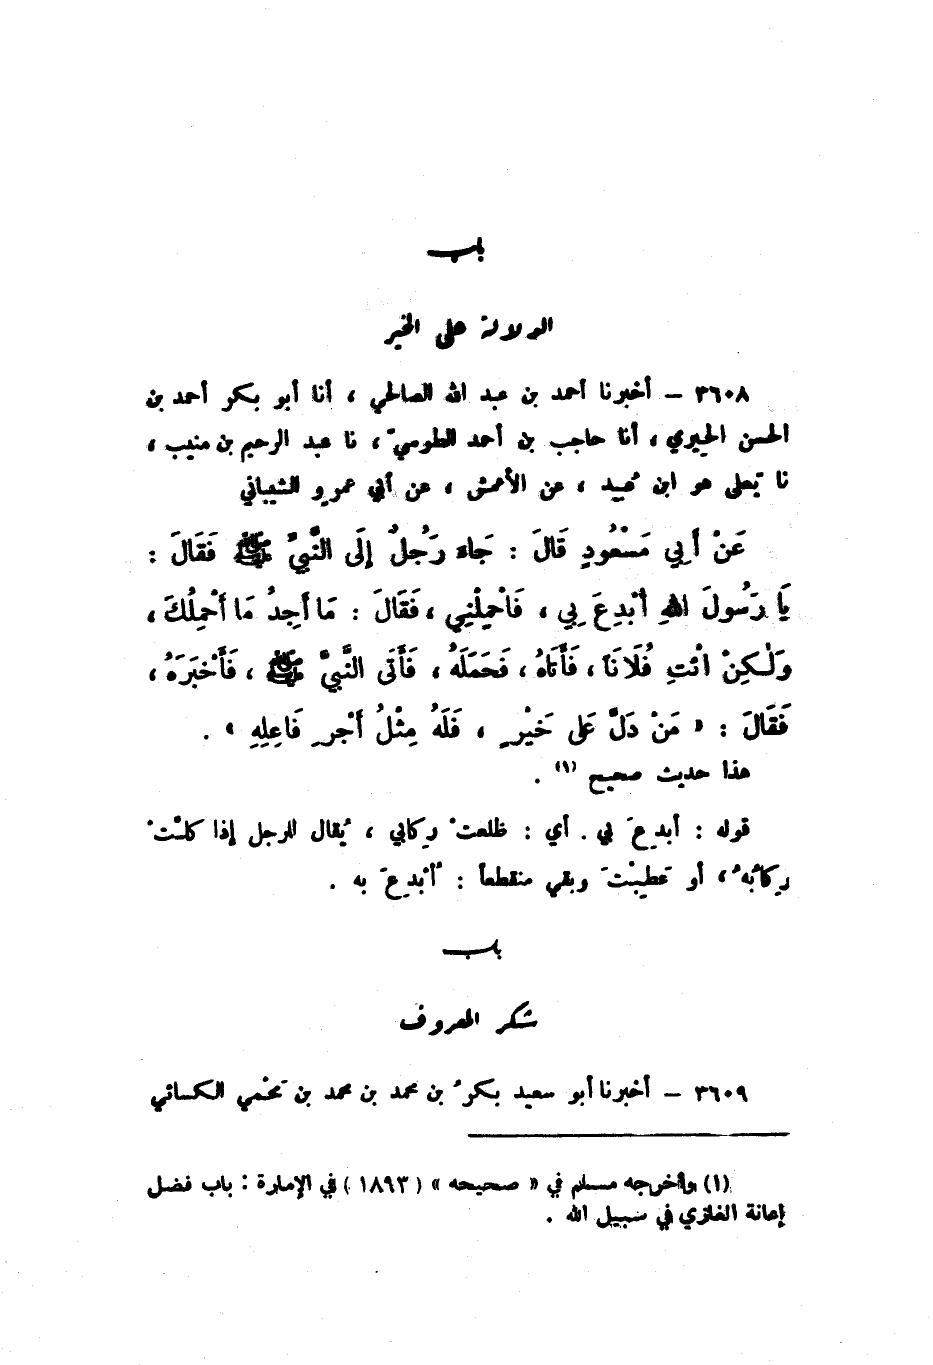 باب
الدلالة على الخير
٣٦٠٨ – أخبرنا أحمد بن عبد الله الصالحي ، أنا أبو بكر أحمد بن
الحسن الحيري ، أنا حاجب بن أحمد الطوسيّ ، نا عبد الرحيم بن منيب ،
نا يَعلى هو ابن عُبيد ، عن الأعمش ، عن أبي عمرو الشيباني
عَنْ أَبِي مَسْعُودٍ قَالَ : جَاءَ رَجُلٌ إِلَى النَّبِيِّ ﷺ فَقَالَ :
يَا رَسُولَ اللهِ أُبْدِعَ بِي ، فَاحْمِلْنِي ، فَقَالَ : مَا أَجِدُ مَا أَحْمِلُكَ ،
وَلٰكِنْ ائْتِ فُلَانَاً ، فَأَتَاهُ ، فَحَمَلَهُ ، فَأَتَى النَّبِيَّ ﷺ ، فَأَخْبَرَهُ ،
فَقَالَ : « مَنْ دَلَّ عَلَى خَيْرٍ ، فَلَهُ مِثْلُ أَجْرِ فَاعِلِهِ » .
هذا حديث صحيح (١) .
قوله : أبدِعَ بي . أي : ظلعتْ رِكابي ، يُقال للرجل إذا كلَّتْ
رِكابُهُ ، أو عَطِبَتْ وبقي منقطعاً : أُبْدِعَ به .
باب
شكر المعروف
٣٦٠٩ – أخبرنا أبو سعيد بكرُ بن محمد بن محمد بن مَحْمي الكسائي
(١) وأخرجه مسلم في « صحيحه » ( ١٨٩٣ ) في الإمارة : باب فضل
إعانة الغازي في سبيل الله .